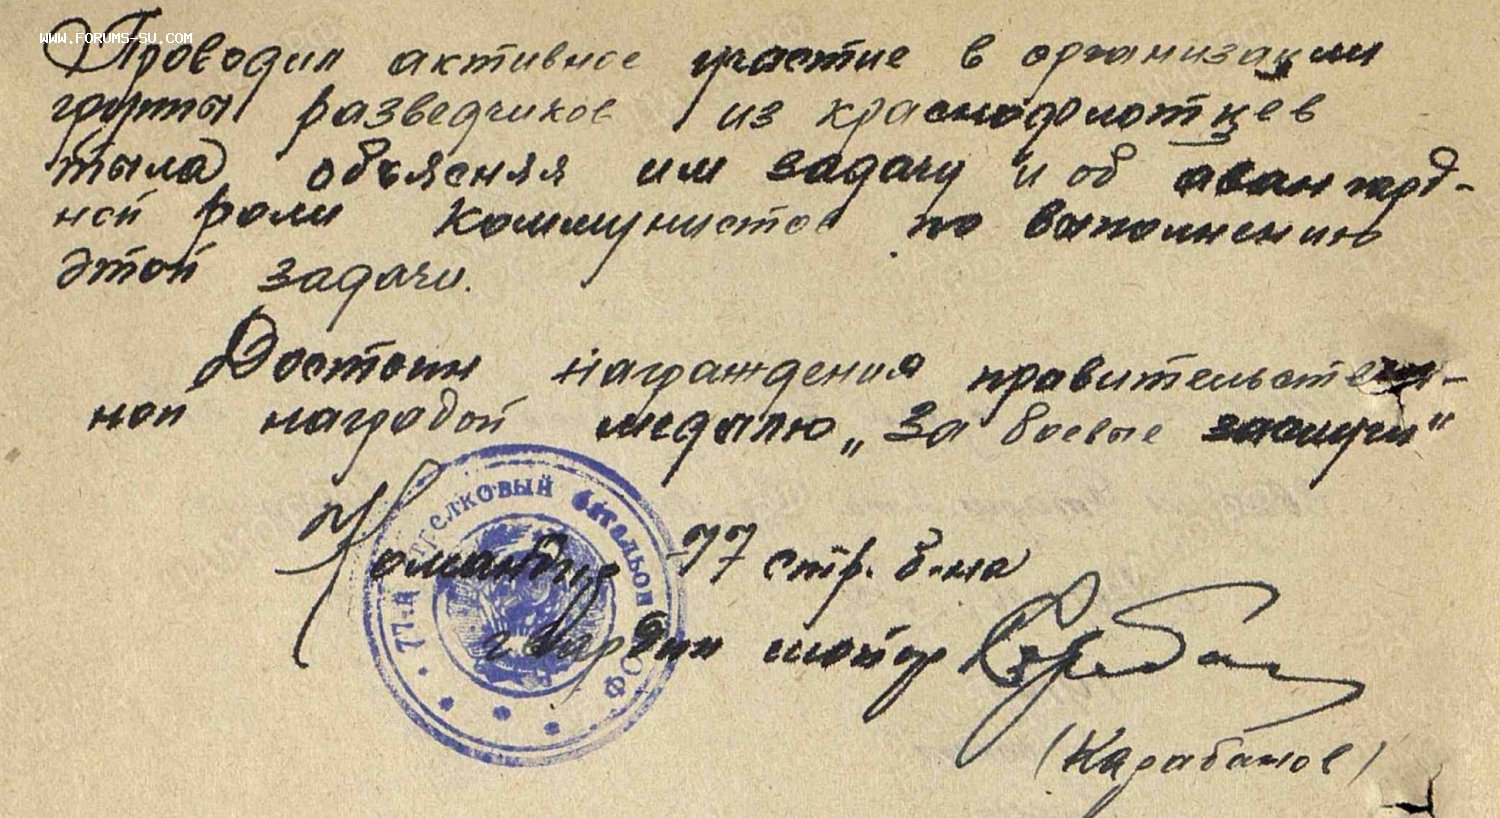 WWW.FORUMS-SU.COM
Проводил активное участие в организации
группы разведчиков из краснофлотцев
тыла объясняя им задачу и об авангард-
ной роли коммунистов по выполнению
этой задачи.
Достоин награждения правительствен-
ной наградой медалю „За боевые заслуги"
77-й стрелковый батальон
Командир 77 стр. б-на
гвардии майор
(Карабанов)